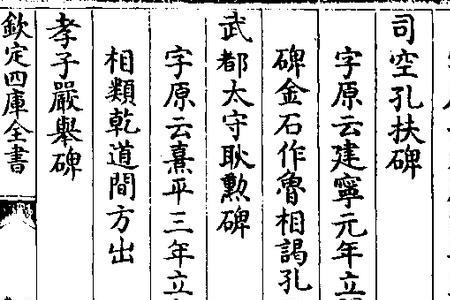 司空孔扶碑
字原云建寧元年立
碑金石作魯相謁孔
武都太守耿勲碑
字原云熹平三年立
相類乾道間方出
孝子嚴舉碑
欽定四庫全書